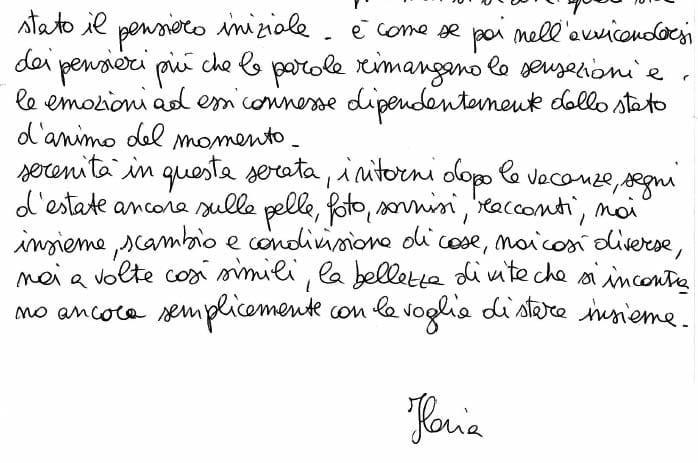 stato il pensiero iniziale - è come se poi nell'avvicendarsi
dei pensieri più che le parole rimangano le sensazioni e
le emozioni ad essi connesse dipendentemente dallo stato
d'animo del momento -
serenità in questa serata, i ritorni dopo le vacanze, segni
d'estate ancora sulla pelle, foto, sorrisi, racconti, noi
insieme, scambio e condivisione di cose, noi così diverse,
noi a volte così simili, la bellezza di vite che si incontra
no ancora semplicemente con la voglia di stare insieme -
Ilaria